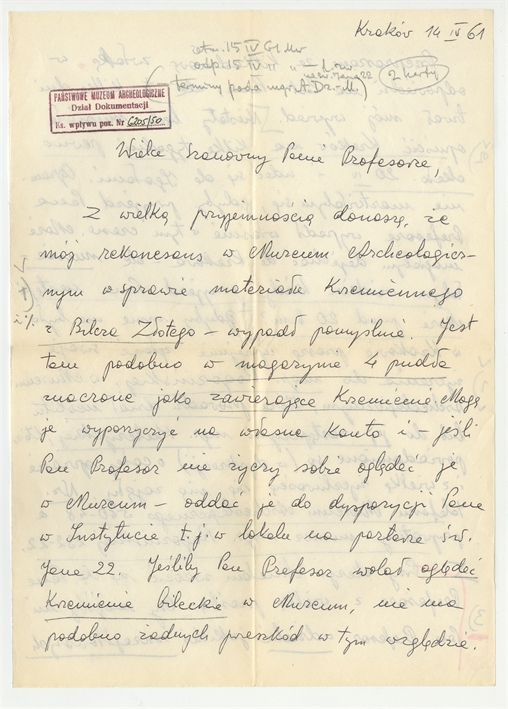 Kraków 14 IV 61
otrz. 15 IV 61
odp. 15 IV
2 karty
terminy poda mgr A. Dz. M.)
PAŃSTWOWE MUZEUM ARCHEOLOGICZNE
Dział Dokumentacji
Ks. wpływu poz. Nr 6205/50
Wielce Szanowny Panie Profesorze,
Z wielką przyjemnością donoszę, że
mój rekonesans w Muzeum Archeologicz-
nym w sprawie materiału Krzemiennego
z Bilcza Złotego – wypadł pomyślnie. Jest
tam podobno w magazynie 4 pudła
znaczone jako zawierające Krzemienie. Mogę
je wypożyczyć na własne Konto i – jeśli
Pan Profesor nie życzy sobie oglądać je
w Muzeum – oddać je do dyspozycji Pana
w Instytucie t.j. w lokalu na parterze św.
Jana 22. Jeśliby Pan Profesor wolał oglądać
Krzemienie bileckie w Muzeum, nie ma
podobno żadnych przeszkód w tym względzie.
1)
3)